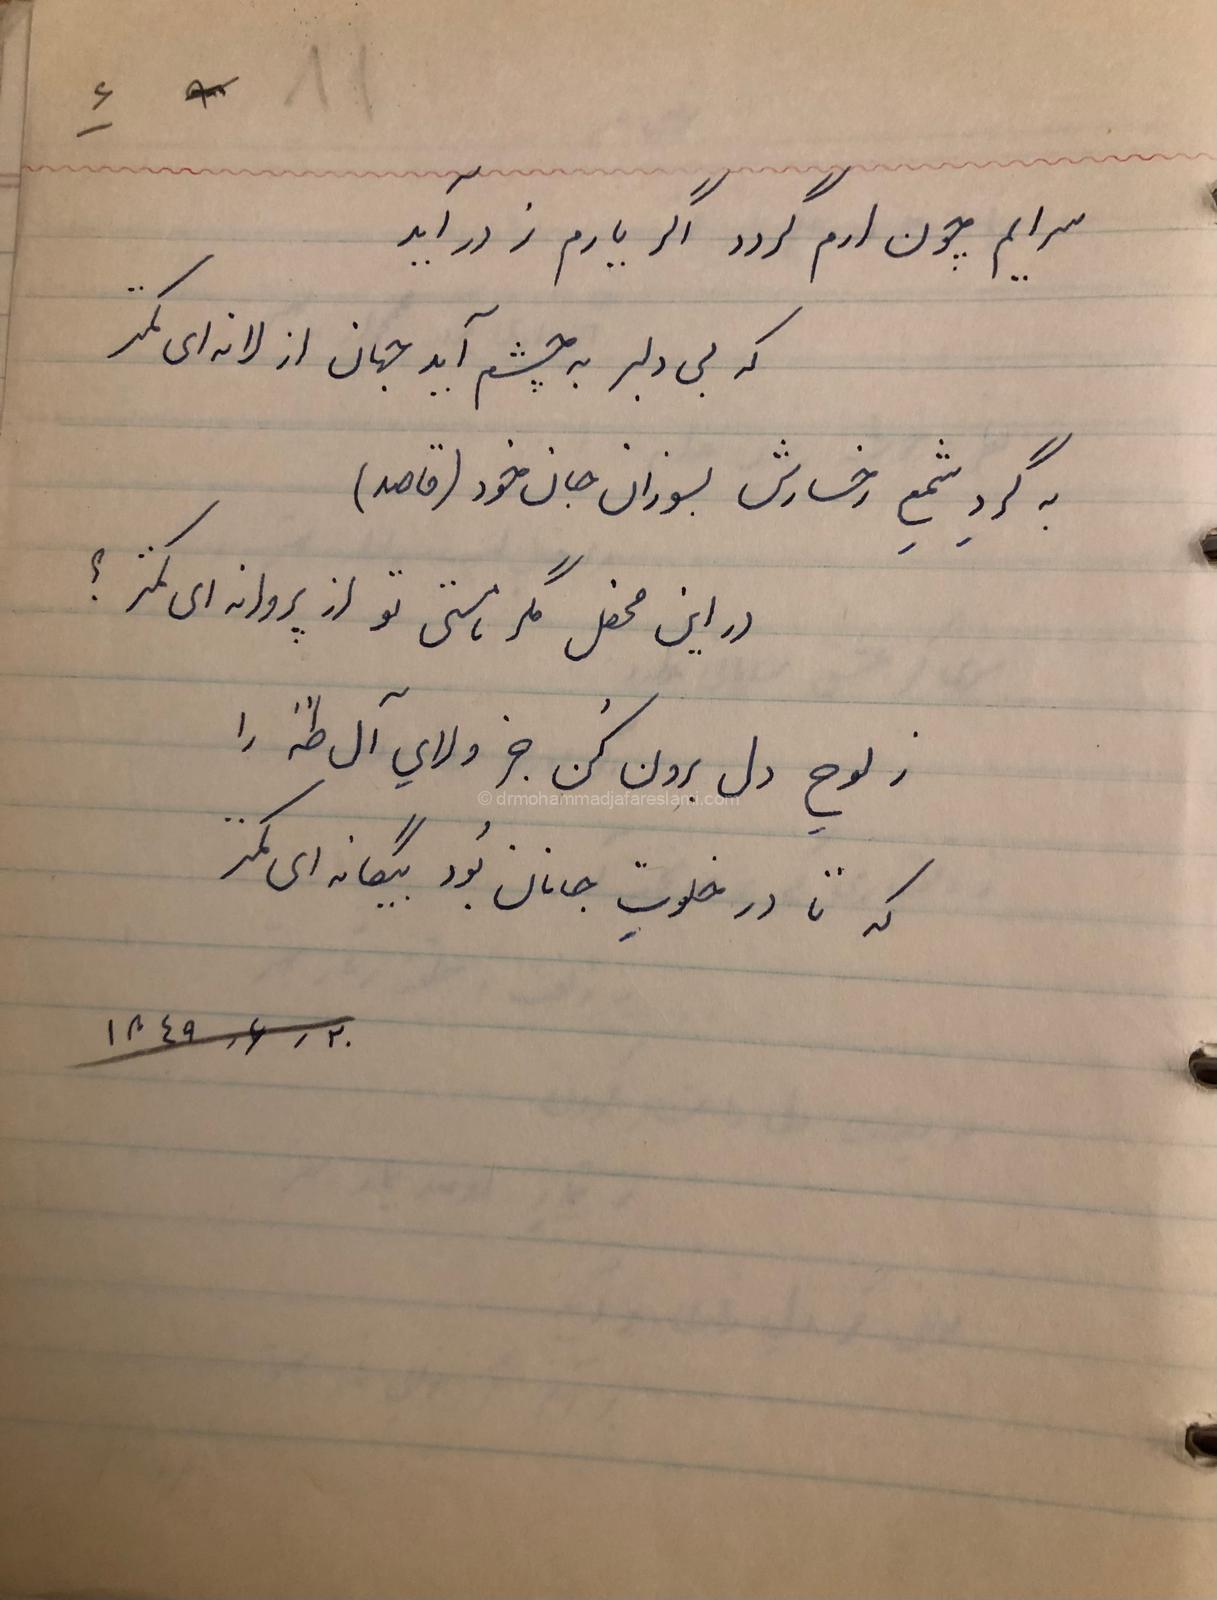 ۸۱ ۶
سرایم چون ارم گردد اگر یارم ز در آید
که بی دلبر به چشم آید جهان از لانه‌ای کمتر
به گردِ شمعِ رخسارش بسوزان جان خود (قاصد)
در این محفل مگر هستی تو از پروانه ای کمتر ؟
ز لوحِ دل برون کُن جز ولایِ آل طٰهٰ را
© drmohammadjafareslami.com
که تا در خلوتِ جانان بُود بیگانه ای کمتر
۲۰ ر ۶ ر ۱۳۴۹